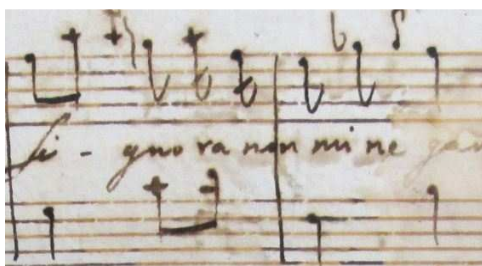 Si - gnora non mi ne gav